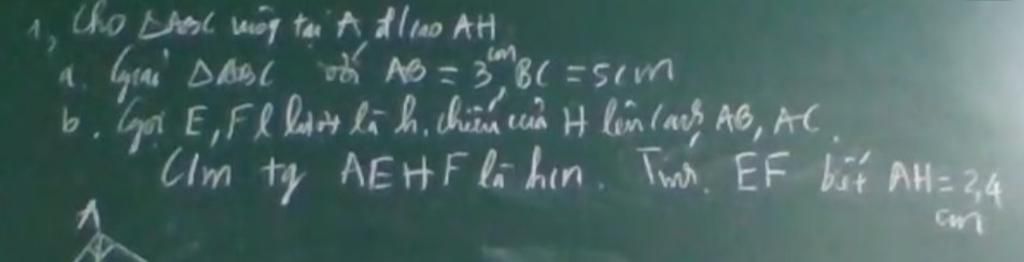 1, Cho △ABC vuông tại A đ/cao AH
a. Giải △ABC với AB = 3cm, BC = 5cm
b. Gọi E, F l lượt là h.chiếu của H lên cạnh AB, AC.
C/m tg AEHF là hcn. Tính EF biết AH = 2,4 cm
A